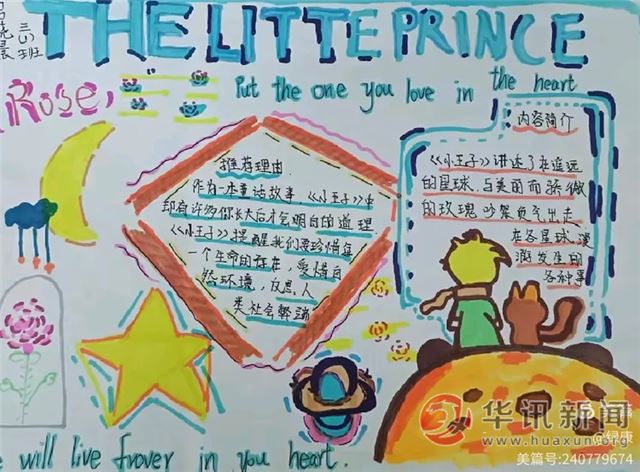 THE LITTE PRINCE
三(1)
班
Rose,
Put the one you love in the heart
推荐理由
作为一本童话故事,《小王子》中
却有许多你长大后才能明白的道理
《小王子》提醒我们要珍惜每
一个生命的存在,爱惜自
然环境,反思人
类社会弊端
内容简介
《小王子》讲述了在遥远
的星球,与美丽而骄傲
的玫瑰吵架负气出走
在各星球漫
游发生的
各种事
will live frover in you heart.
华讯新闻
www.huaxun.org
@银康
美篇号:240779674